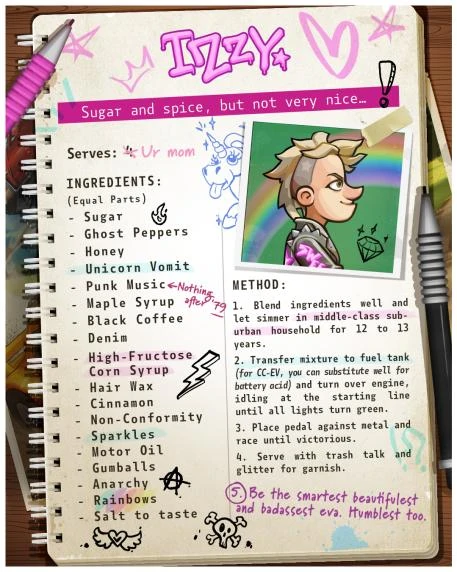 IZZY
Sugar and spice, but not very nice…
!
Serves: Ur mom
INGREDIENTS:
(Equal Parts)
- Sugar
- Ghost Peppers
- Honey
- Unicorn Vomit
- Punk Music ← Nothing after '79
- Maple Syrup
- Black Coffee
- Denim
- High-Fructose
Corn Syrup
- Hair Wax
- Cinnamon
- Non-Conformity
- Sparkles
- Motor Oil
- Gumballs
- Anarchy
- Rainbows
- Salt to taste
METHOD:
1. Blend ingredients well and
let simmer in middle-class sub-
urban household for 12 to 13
years.
2. Transfer mixture to fuel tank
(for CC-EV, you can substitute well for
battery acid) and turn over engine,
idling at the starting line
until all lights turn green.
3. Place pedal against metal and
race until victorious.
4. Serve with trash talk and
glitter for garnish.
5. Be the smartest beautifulest
and badassest eva. Humblest too.